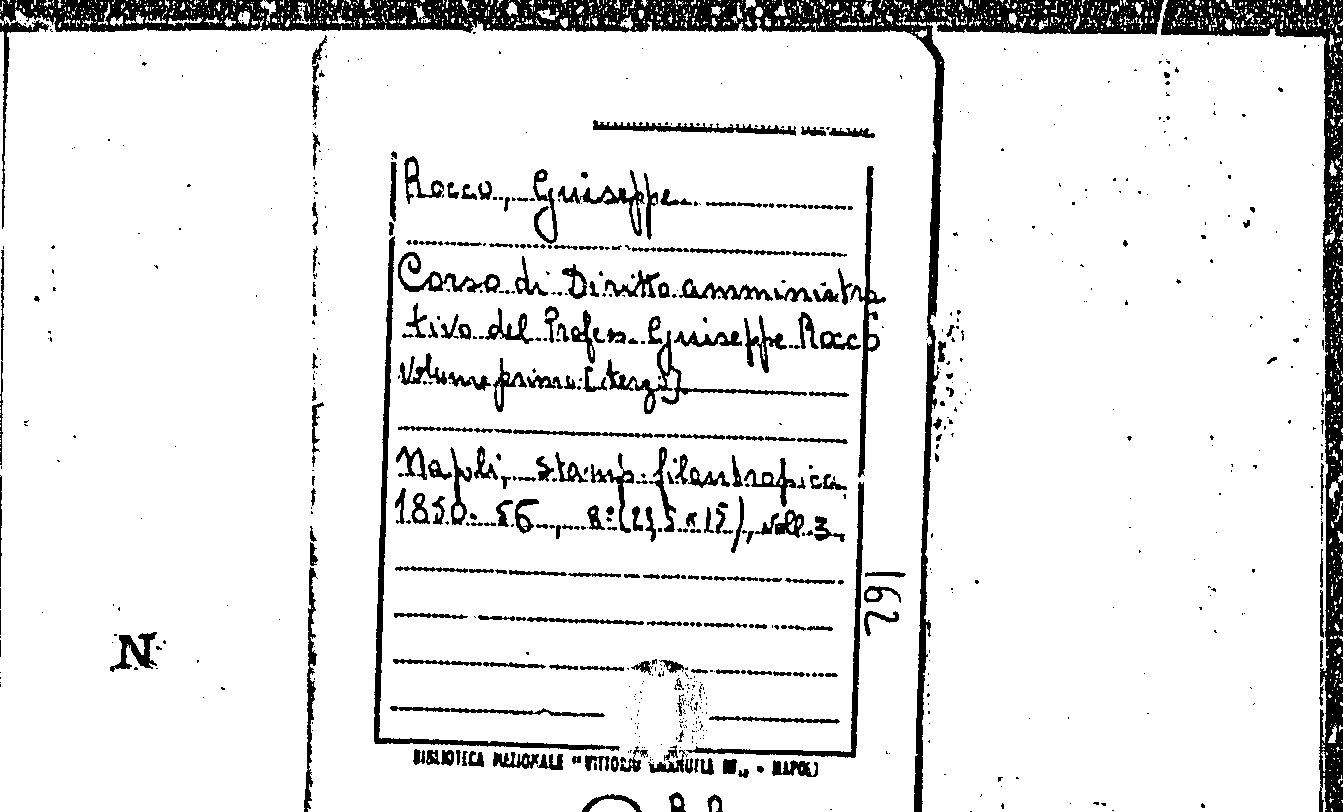 Rocco, Giuseppe
Corso di Diritto amministra
tivo del Profess. Giuseppe Rocco
Volume primo [terzo]
Napoli, stamp. filantropica
1850-56, 8° (23,5 x 15), voll. 3.
162
N
BIBLIOTECA NAZIONALE "VITTORIO EMANUELE III" - NAPOLI